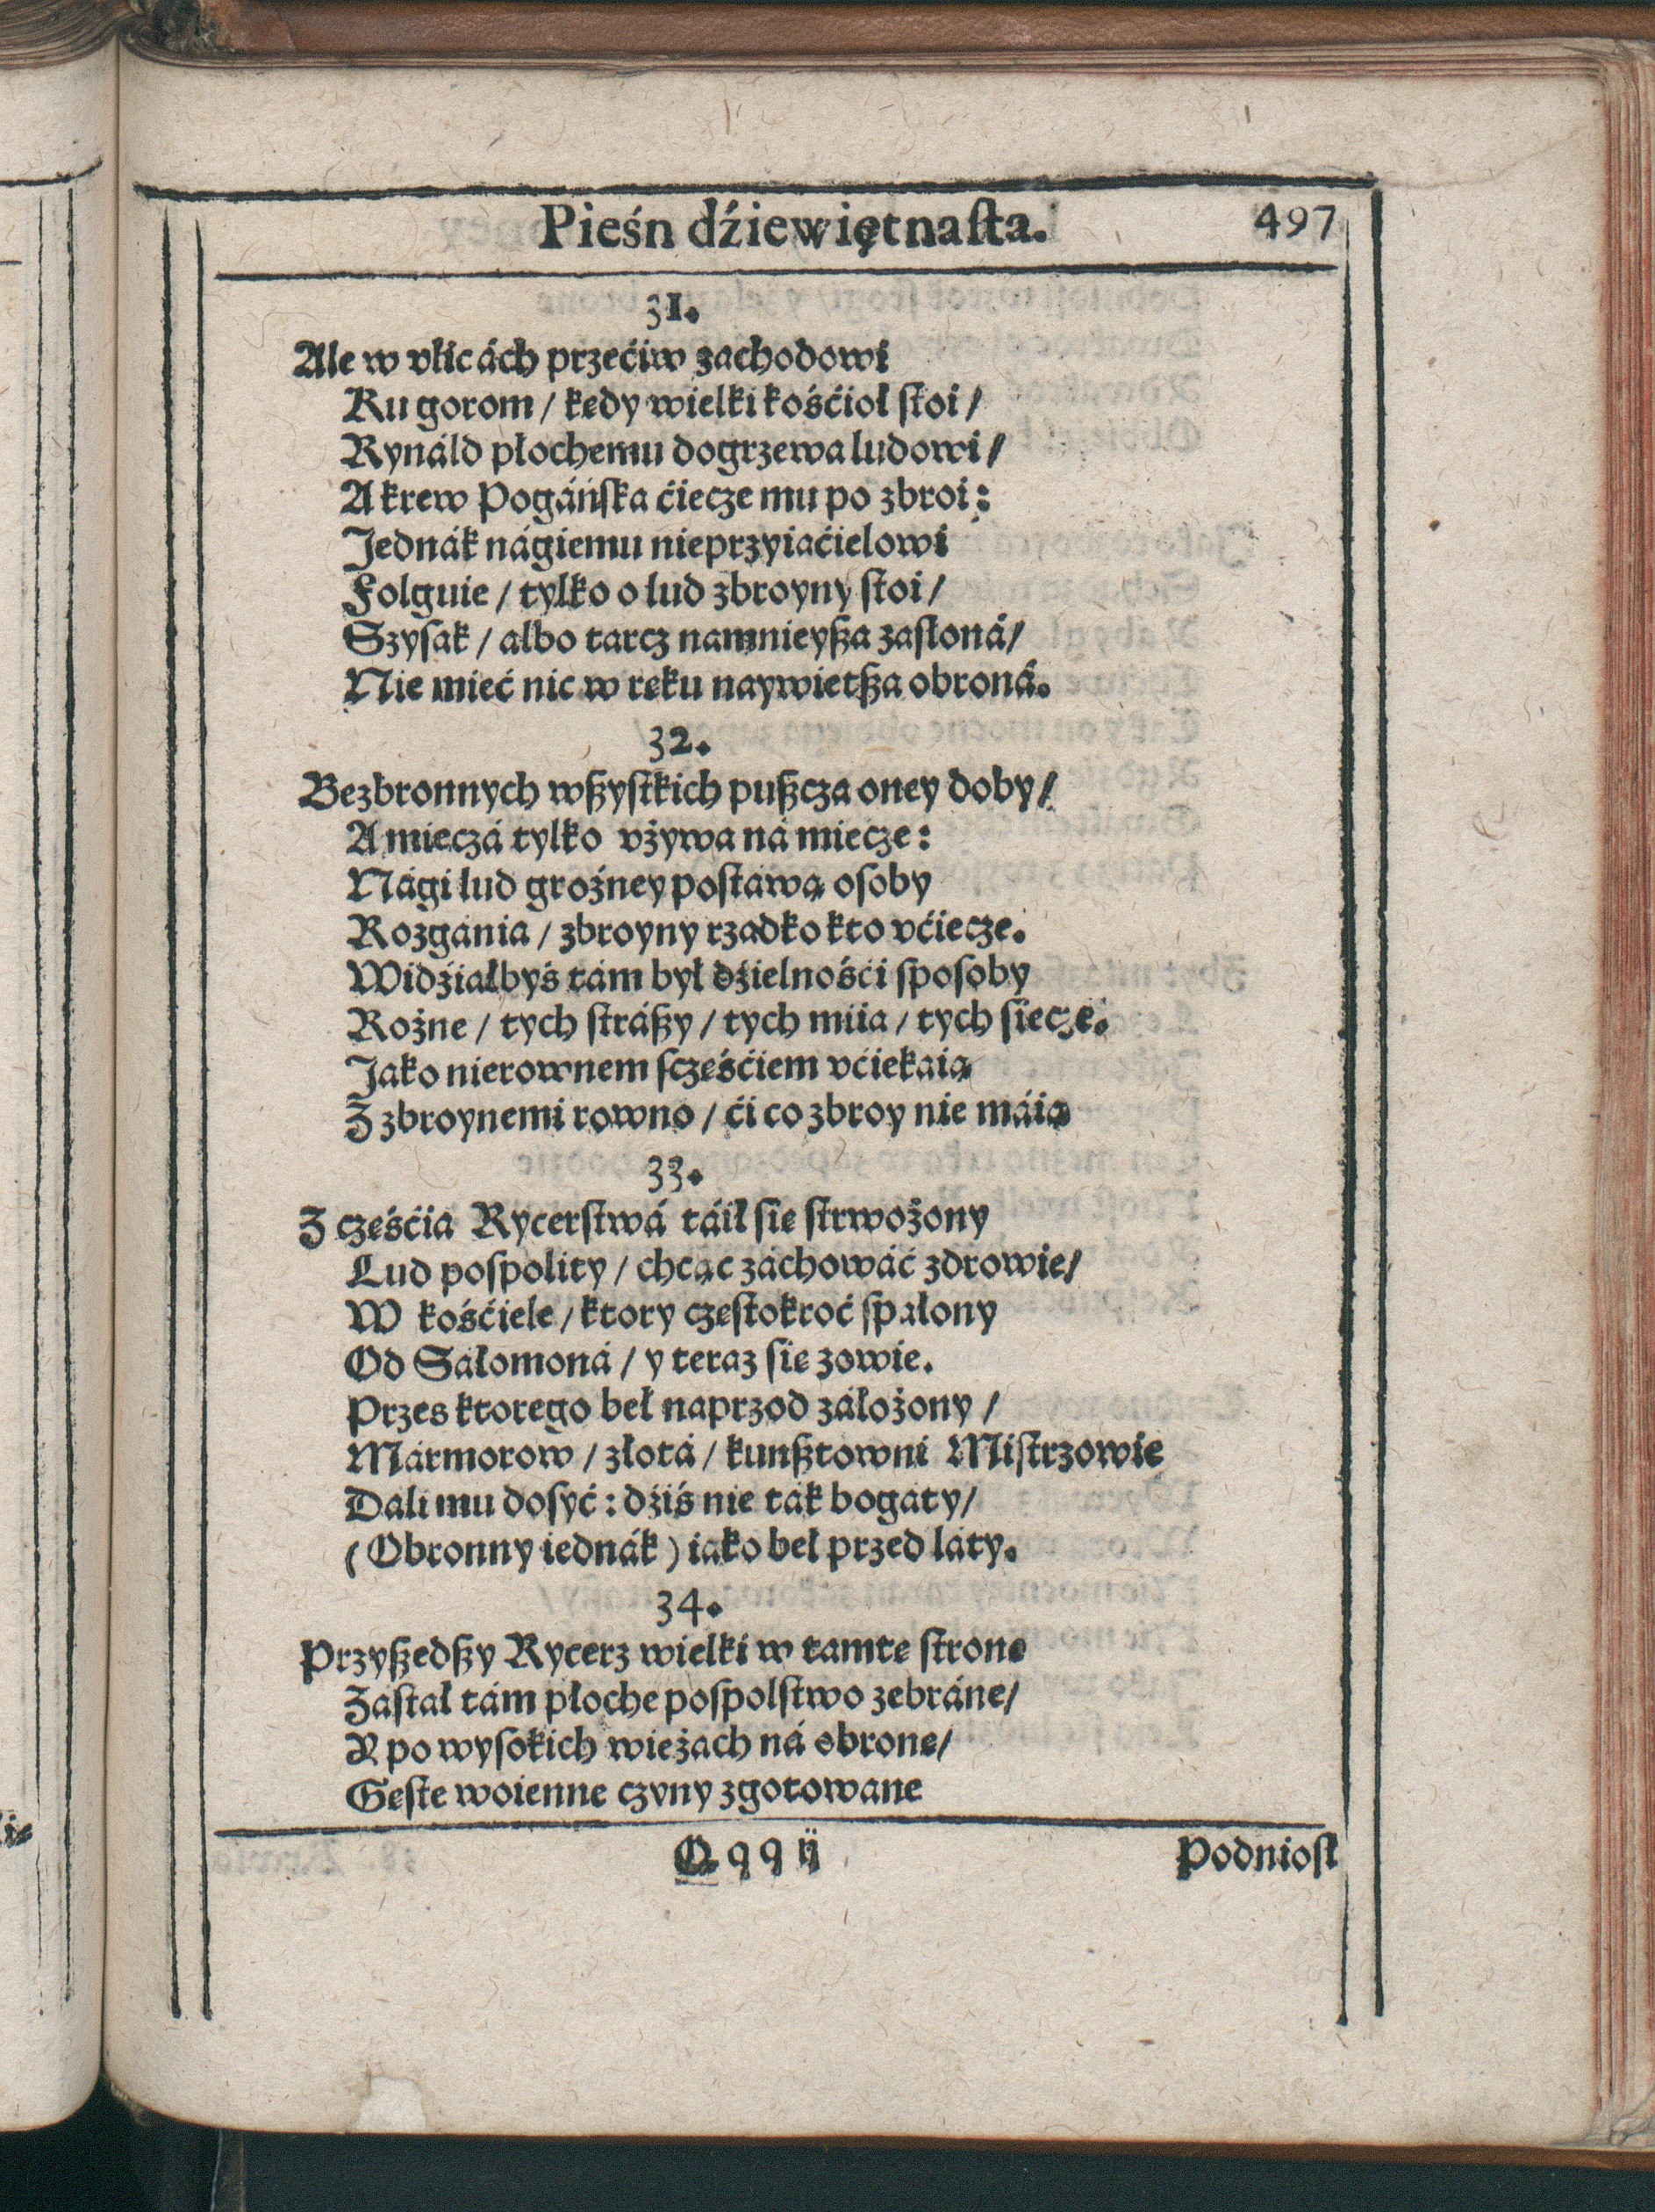 Pieśn dźiewiętnaſta. 497
31.
Ale w vlicách przećiw zachodowi
Ku gorom / kędy wielki kośćioł ſtoi /
Rynáld płochemu dogrzewa ludowi /
A krew Pogáńſka ćiecze mu po zbroi:
Jednák nágiemu nieprzyiaćielowi
Folguie / tylko o lud zbroyny ſtoi /
Szyſak / albo tarcz namnieyßa zasłoná /
Nie mieć nic w ręku naywiętßa obroná.
32.
Bezbronnych wßyſtkich pußcza oney doby /
A mieczá tylko vżywa ná miecze:
Nági lud groźney poſtáwą oſoby
Rozgánia / zbroyny rzadko kto vćiecze.
Widźiałbyś tám był dźielnośći ſpoſoby
Rożne / tych ſtráßy / tych miia / tych ſiecze.
Jako nierownem ſczęśćiem vćiekaią
Z zbroynemi rowno / ći co zbroy nie máią
33.
Z częśćia Rycerſtwá táił ſię ſtrwożony
Lud poſpolity / chcąc záchowáć zdrowie /
W kośćiele / ktory częſtokroć ſpalony
Od Sálomoná / y teraz ſię zowie.
Przes ktorego beł naprzod záłożony /
Mármorow / złotá / kunßtowni Miſtrzowie
Dali mu doſyć: dźiś nie ták bogáty /
(Obronny iednák) iáko beł przed láty.
34.
Przyßedßy Rycerz wielki w tamtę ſtronę
Záſtał tám płoche poſpolſtwo zebráne /
Y po wyſokich wieżach ná obronę /
Gęſte woienne czyny zgotowane
Qqq ij Podnioſł